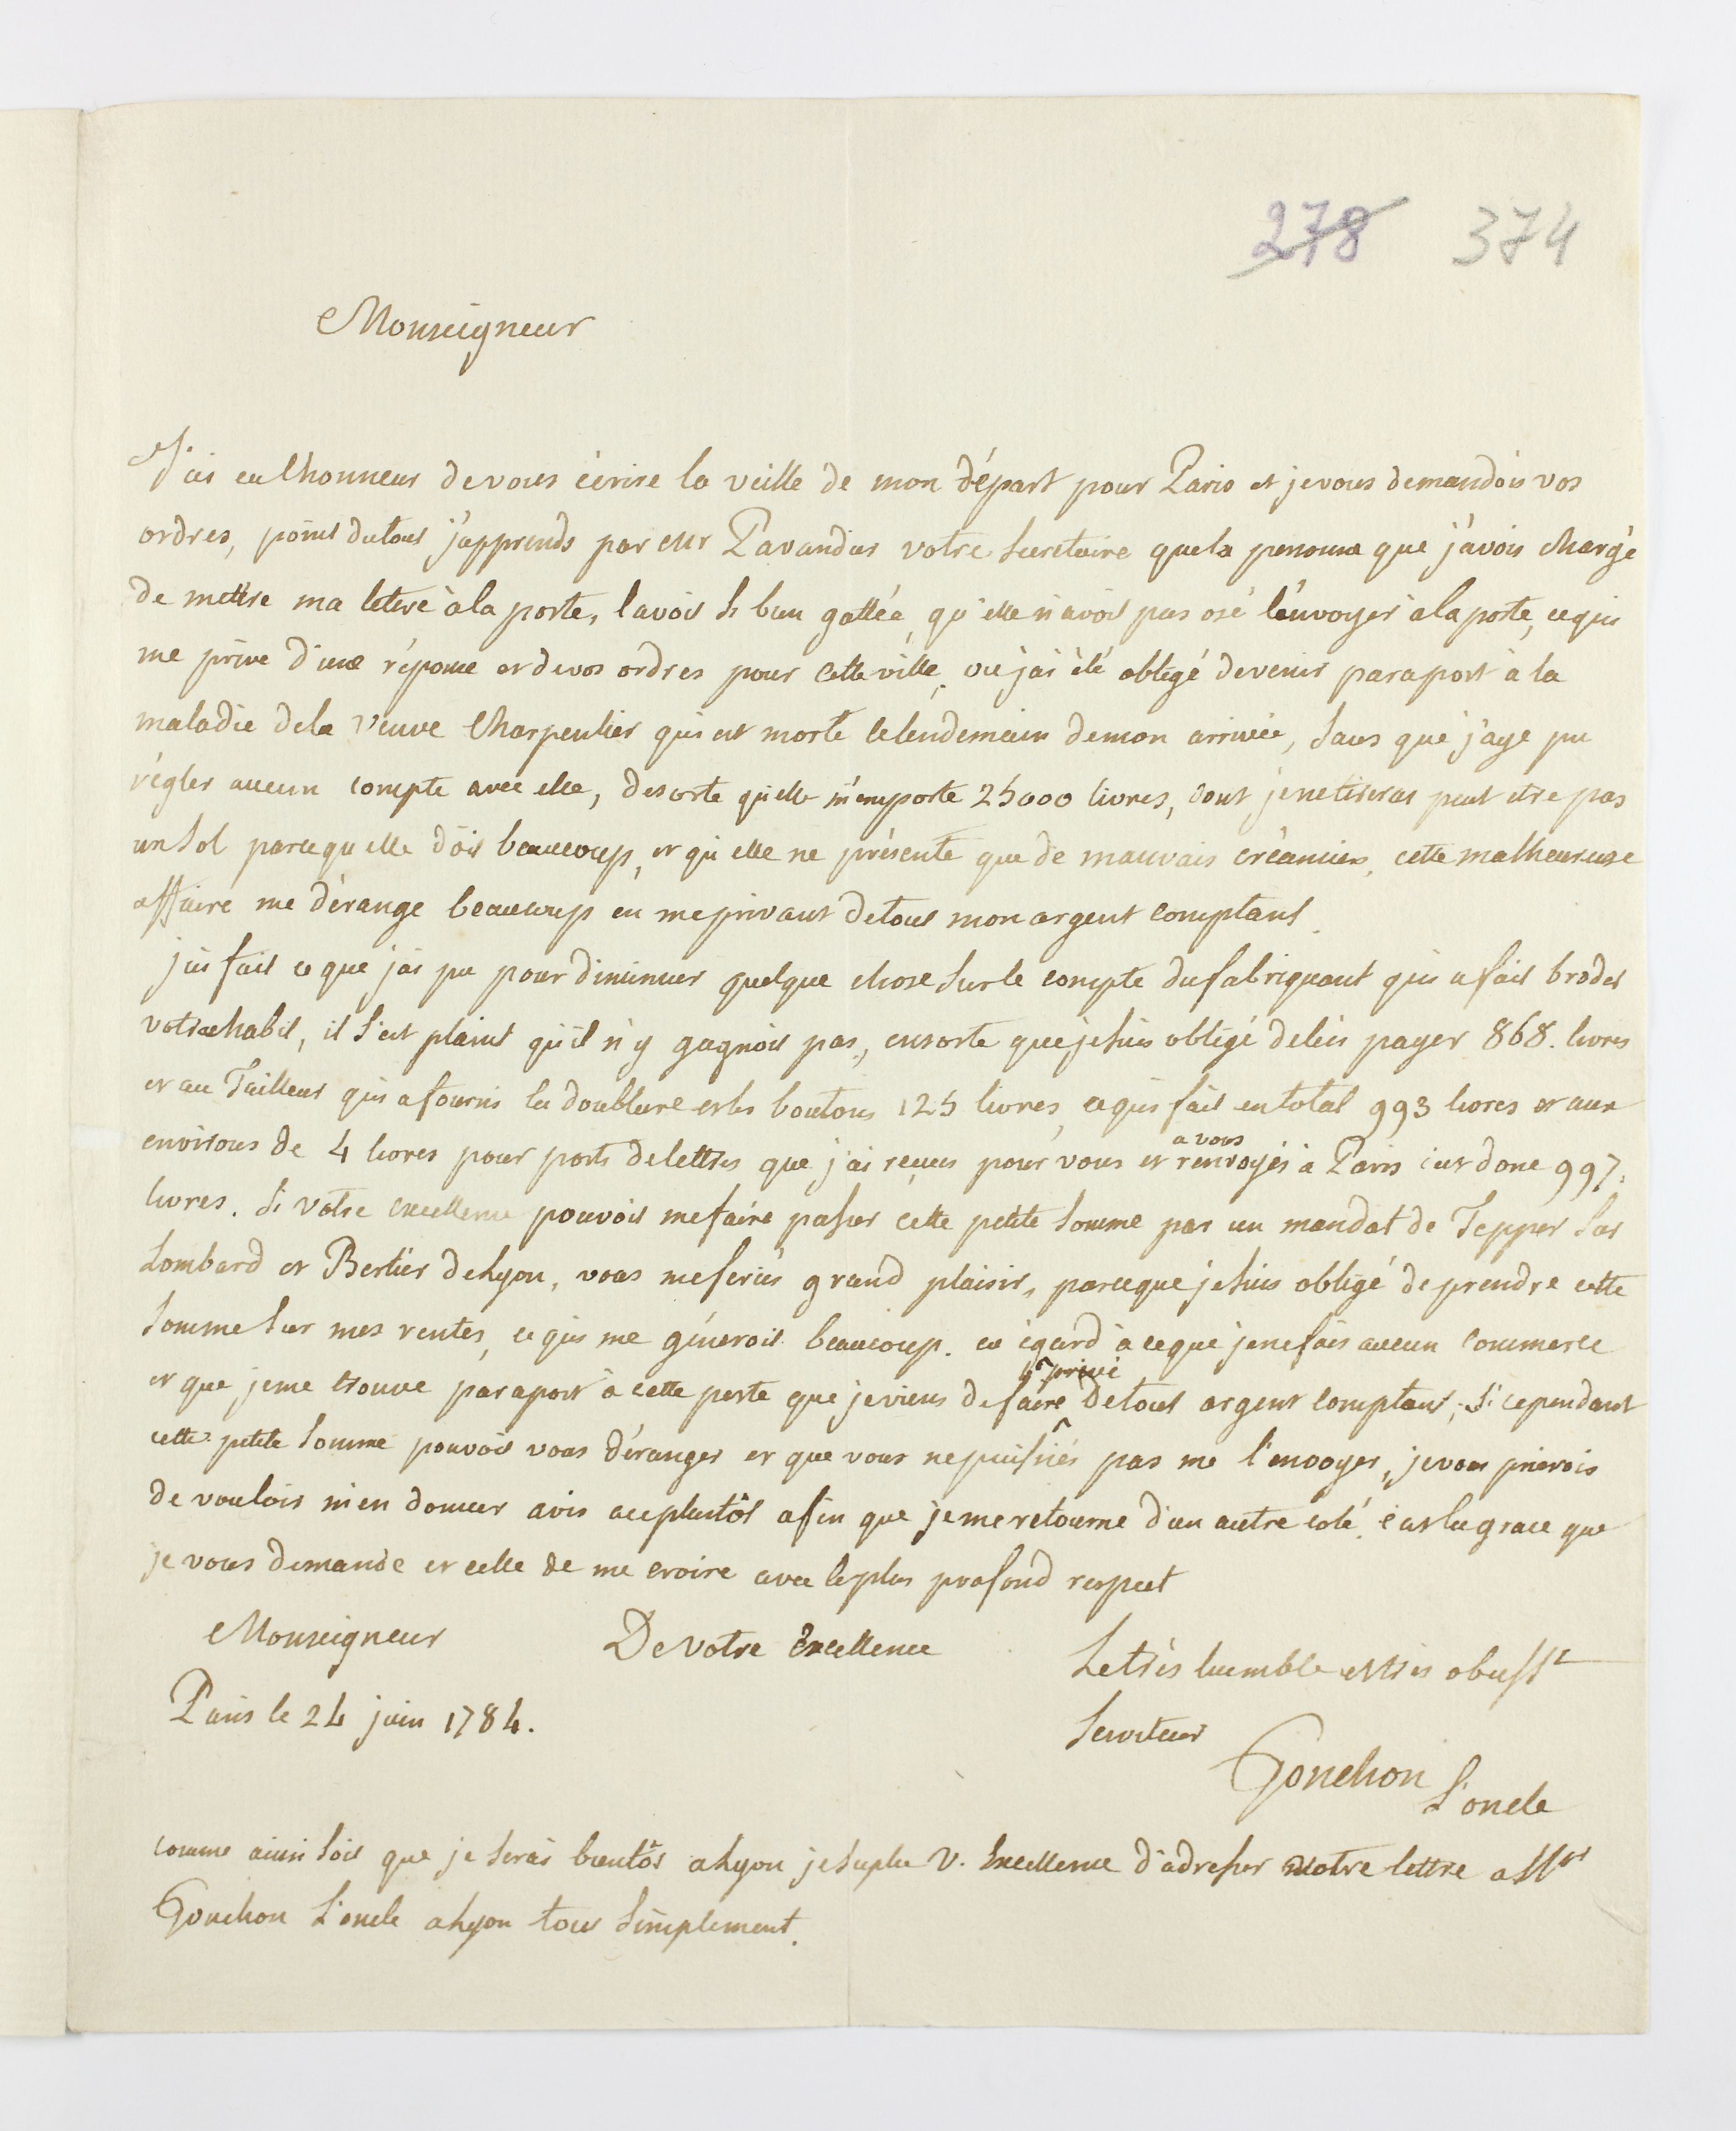 278 374
Monseigneur
J'ai eu lhonneur de vous écrire la veille de mon départ pour Paris et je vous demandois vos
ordres, point du tout j'apprends par Mr Pavandus votre Secretaire que la personne que j'avois chargé
de mettre ma lettre à la poste, lavoit si bien gattée, qu'elle n'avoit pas osé l'envoyer a la poste, ce qui
me prive d'une réponse et de vos ordres pour cette ville, ou jai été obligé de venir paraport à la
maladie de la veuve Charpentier qui est morte le lendemain de mon arrivée, sans que j'aye pu
régler aucun compte avec elle, desorte qu'elle m'emporte 25000 livres, dont je ne tirerai peut etre pas
un Sol parcequ elle doit beaucoup, et qu elle ne présente que de mauvais créanciers, cette malheureuse
affaire me dérange beaucoup en me privant de tout mon argent comptant.
j'ai fait ce que j'ai pu pour diminuer quelque chose Sur le compte du fabriquant qui a fait broder
votre habit, il S'est plaint qu'il n'y gagnoit pas, ensorte que je Suis obligé de lui payer 868. livres
et au Tailleur qui a fournis la doublure et les boutons 125 livres, ce qui fait en total 993 livres et aux
environs de 4 livres pour ports de lettres que j'ai reçues pour vous et a vous renvoyés à Paris c'est donc 997.
livres. Si votre excellence pouvoit me faire passer cette petite Somme par un mandat de Tepper Sur
Lombard et Bertier de Lyon, vous me feriés grand plaisir, parceque je Suis obligé de prendre cette
Somme Sur mes rentes, ce qui me gêneroit beaucoup. eu égard à ce que je ne fais aucun commerce
et que je me trouve paraport à cette perte que je viens de faire privé de tout argent comptant, Si cependant
cette petite Somme pouvoit vous déranger et que vous ne puissiés pas me l'envoyer, je vous prierois
de vouloir m'en donner avis au plustôt afin que je me retourne d'un autre coté. c'est la grace que
je vous demande et celle de me croire avec le plus profond respect
Monseigneur De Votre Excellence Le très humble et très obeisst
Paris le 24 juin 1784. Serviteur
Gonchon L'oncle
comme ainsi soit que je Serai bientôt a Lyon je Suplie V. Excellence d'adresser votre lettre a Mr
Gonchon L'oncle a Lyon tout Simplement.